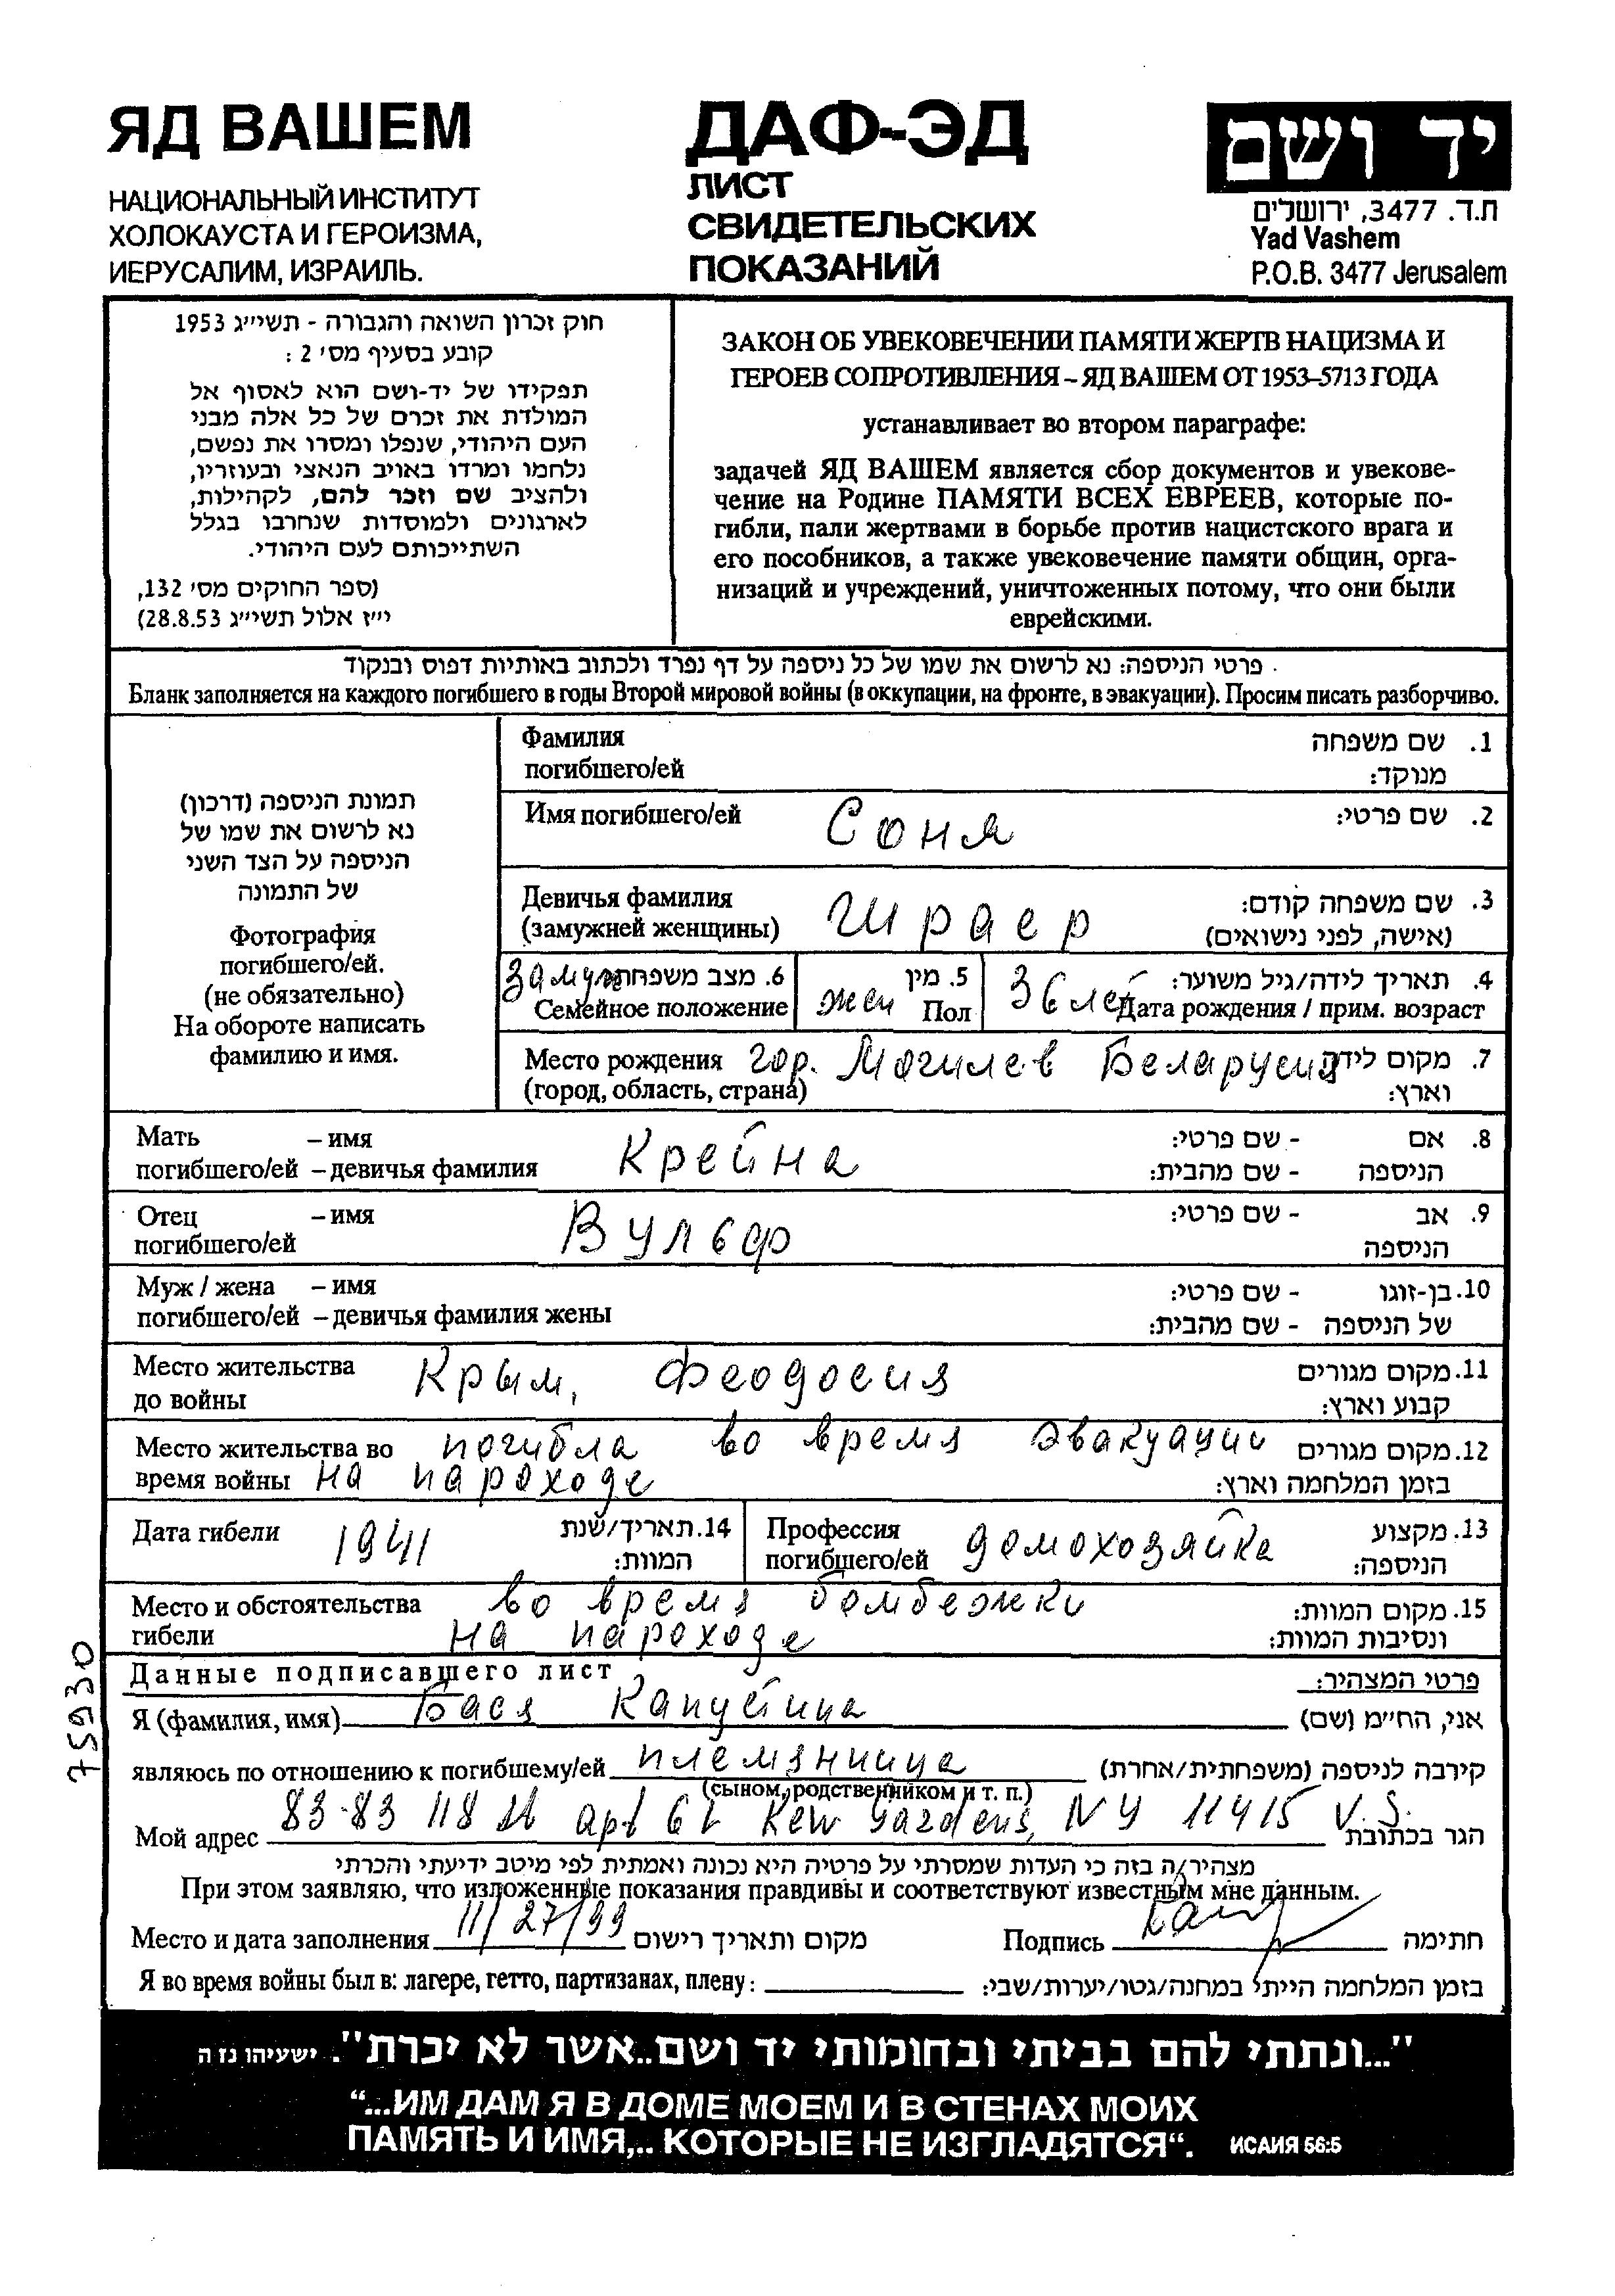 ЯД ВАШЕМ
НАЦИОНАЛЬНЫЙ ИНСТИТУТ
ХОЛОКАУСТА И ГЕРОИЗМА,
ИЕРУСАЛИМ, ИЗРАИЛЬ.
ДАФ-ЭД
ЛИСТ
СВИДЕТЕЛЬСКИХ
ПОКАЗАНИЙ
יד ושם
ת.ד. 3477, ירושלים
Yad Vashem
P.O.B. 3477 Jerusalem
חוק זכרון השואה והגבורה - תשי״ג 1953
קובע בסעיף מס׳ 2 :
תפקידו של יד-ושם הוא לאסוף אל
המולדת את זכרם של כל אלה מבני
העם היהודי, שנפלו ומסרו את נפשם,
נלחמו ומרדו באויב הנאצי ובעוזריו,
ולהציב שם וזכר להם, לקהילות,
לארגונים ולמוסדות שנחרבו בגלל
השתייכותם לעם היהודי.
(ספר החוקים מס׳ 132,
י״ז אלול תשי״ג 28.8.53)
ЗАКОН ОБ УВЕКОВЕЧЕНИИ ПАМЯТИ ЖЕРТВ НАЦИЗМА И
ГЕРОЕВ СОПРОТИВЛЕНИЯ – ЯД ВАШЕМ ОТ 1953–5713 ГОДА
устанавливает во втором параграфе:
задачей ЯД ВАШЕМ является сбор документов и увекове-
чение на Родине ПАМЯТИ ВСЕХ ЕВРЕЕВ, которые по-
гибли, пали жертвами в борьбе против нацистского врага и
его пособников, а также увековечение памяти общин, орга-
низаций и учреждений, уничтоженных потому, что они были
еврейскими.
פרטי הניספה: נא לרשום את שמו של כל ניספה על דף נפרד ולכתוב באותיות דפוס ובנקוד
Бланк заполняется на каждого погибшего в годы Второй мировой войны (в оккупации, на фронте, в эвакуации). Просим писать разборчиво.
תמונת הניספה (דרכון)
נא לרשום את שמו של
הניספה על הצד השני
של התמונה
Фотография
погибшего/ей.
(не обязательно)
На обороте написать
фамилию и имя.
Фамилия 1. שם משפחה
погибшего/ей מנוקד:
Имя погибшего/ей Соня 2. שם פרטי:
Девичья фамилия Шраер 3. שם משפחה קודם:
(замужней женщины) (אישה, לפני נישואים)
замуж 6. מצב משפחתי жен 5. מין 36 лет 4. תאריך לידה/גיל משוער:
Семейное положение Пол Дата рождения / прим. возраст
Место рождения гор. Могилев Беларусия 7. מקום לידה
(город, область, страна) וארץ:
Мать – имя Крейна 8. אם - שם פרטי:
погибшего/ей – девичья фамилия הניספה - שם מהבית:
Отец – имя Вульф 9. אב - שם פרטי:
погибшего/ей הניספה
Муж / жена – имя 10. בן-זוגו - שם פרטי:
погибшего/ей – девичья фамилия жены של הניספה - שם מהבית:
Место жительства Крым, Феодосия 11. מקום מגורים
до войны קבוע וארץ:
Место жительства во погибла во время эвакуации 12. מקום מגורים
время войны на пароходе בזמן המלחמה וארץ:
Дата гибели 1941 14. תאריך/שנת המוות:
Профессия домохозяйка 13. מקצוע
погибшего/ей הניספה:
Место и обстоятельства во время бомбежки 15. מקום המוות:
гибели на пароходе ונסיבות המוות:
75930
Данные подписавшего лист פרטי המצהיר:
Я (фамилия, имя) Бася Капустина אני, החי״מ (שם)
являюсь по отношению к погибшему/ей племянница קירבה לניספה (משפחתית/אחרת)
(сыном, родственником и т. п.)
83-83 118 St apt 6L Kew Gardens, NY 11415 U.S.
Мой адрес הגר בכתובת
מצהיר/ה בזה כי העדות שמסרתי על פרטיה היא נכונה ואמתית לפי מיטב ידיעתי והכרתי
При этом заявляю, что изложенные показания правдивы и соответствуют известным мне данным.
Место и дата заполнения 11/27/99 מקום ותאריך רישום Подпись חתימה
Я во время войны был в: лагере, гетто, партизанах, плену: בזמן המלחמה הייתי במחנה/גטו/יערות/שבי:
"...ונתתי להם בביתי ובחומותי יד ושם..אשר לא יכרת". ישעיהו נז ה
“...ИМ ДАМ Я В ДОМЕ МОЕМ И В СТЕНАХ МОИХ
ПАМЯТЬ И ИМЯ,.. КОТОРЫЕ НЕ ИЗГЛАДЯТСЯ“. ИСАИЯ 56:5